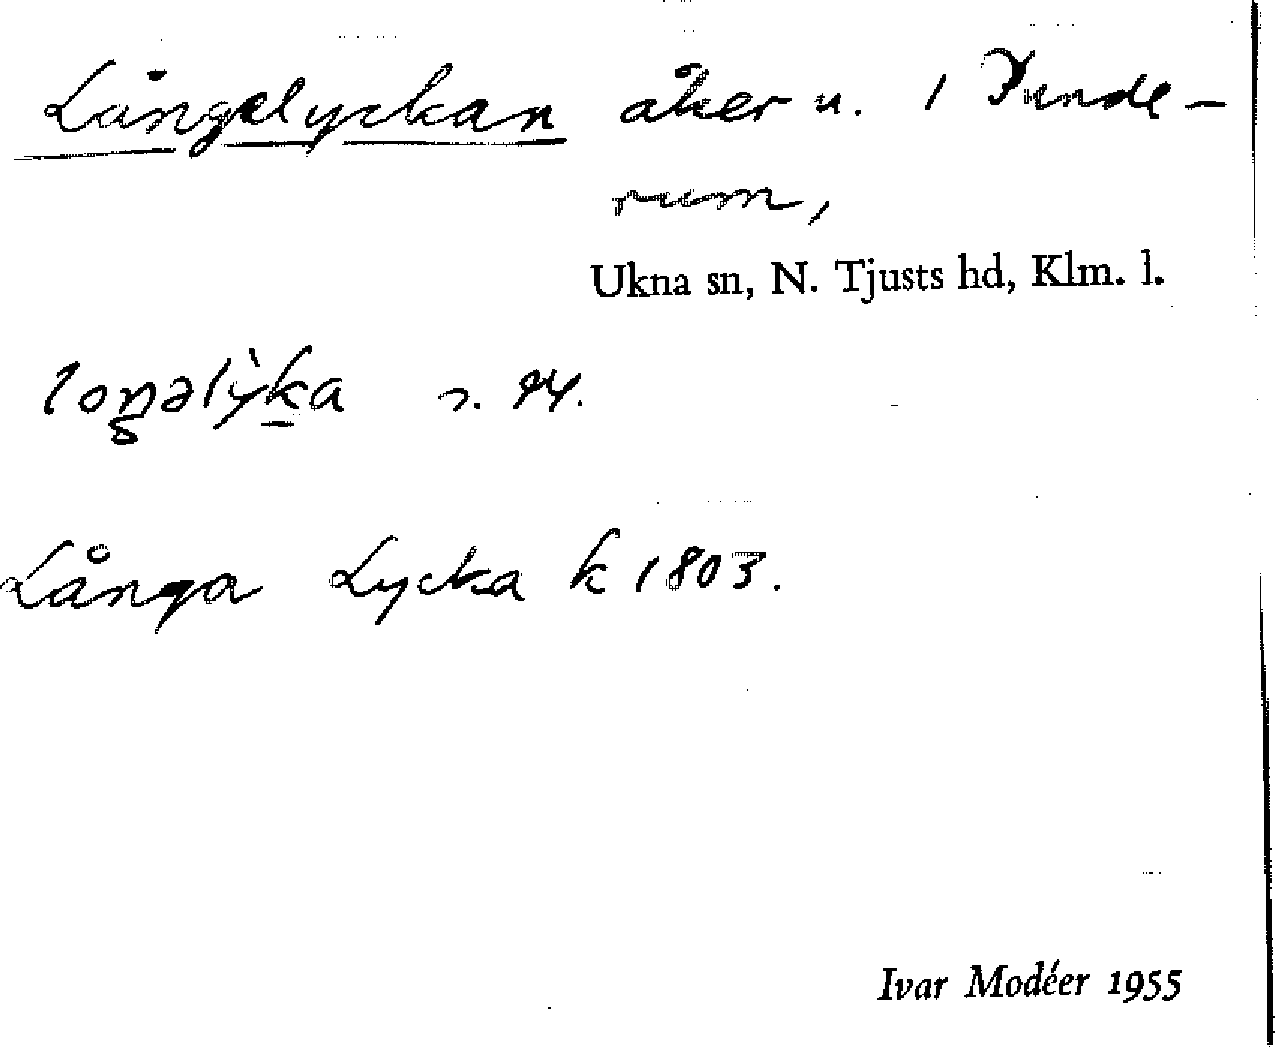 Långelyckan åker u. 1 Vunde-
rum,
Ukna sn, N. Tjusts hd, Klm. l.
loŋəlỳka
Långa Lycka k 1803.
Ivar Modéer 1955